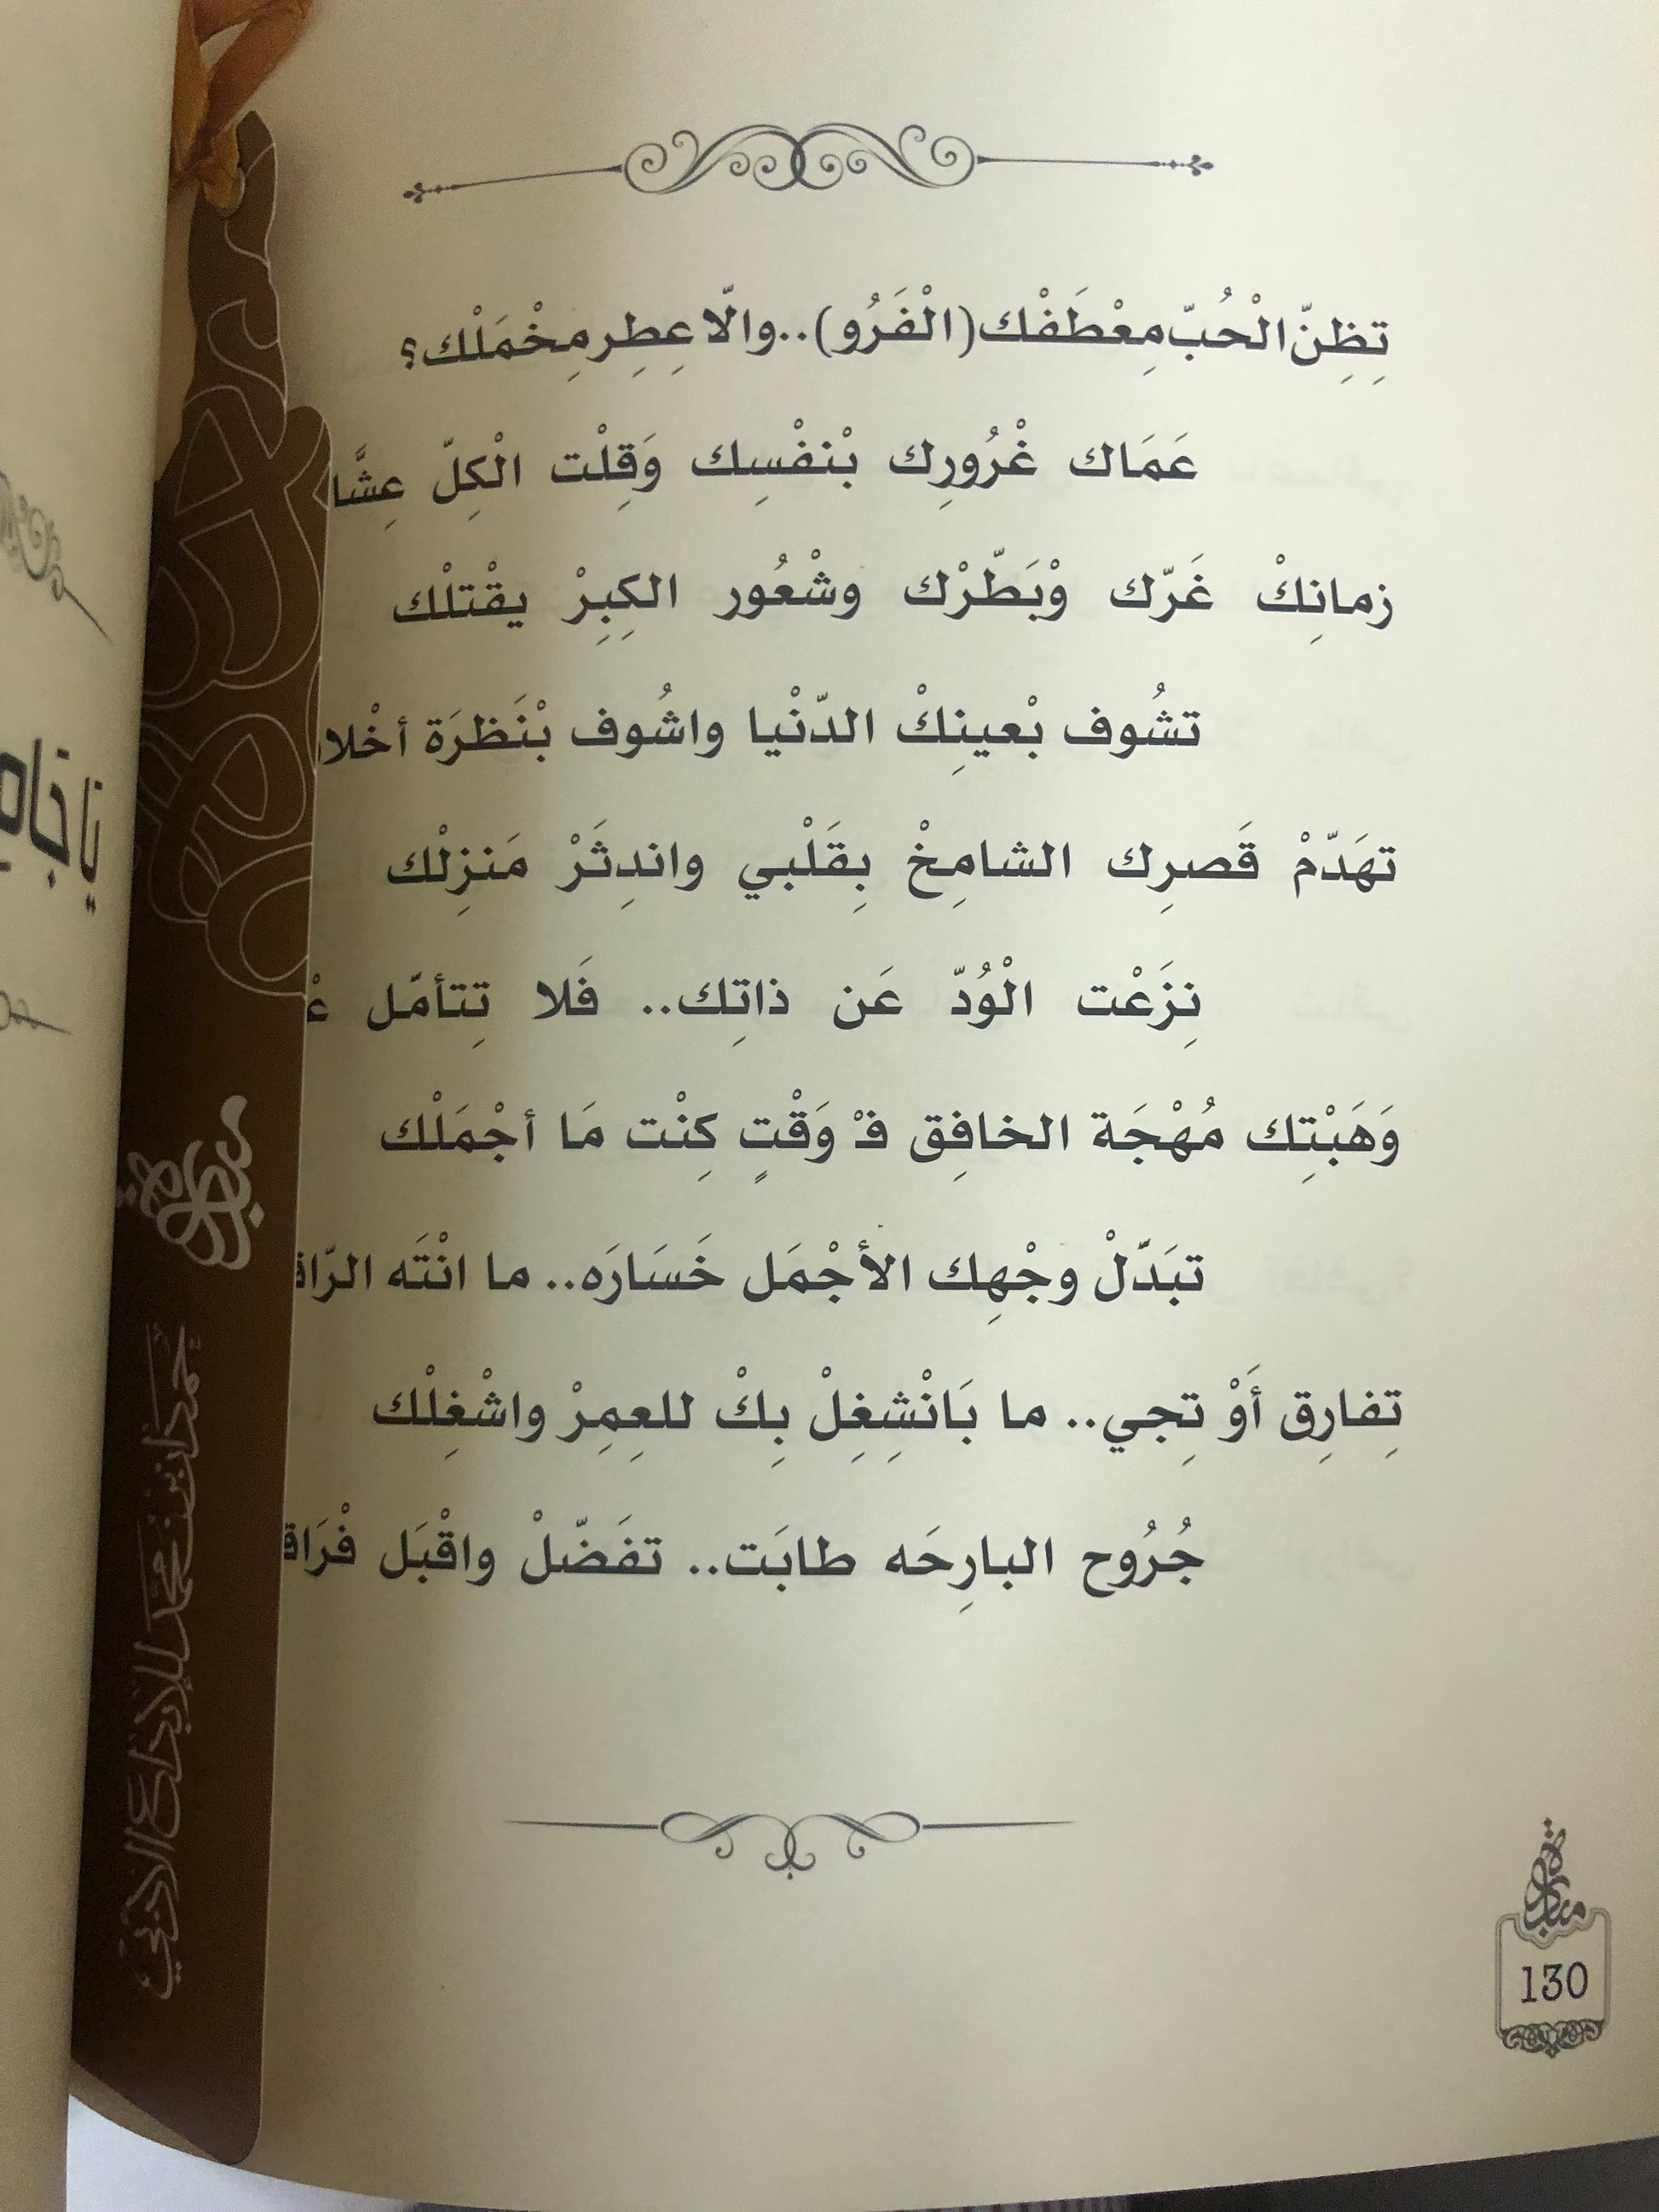 تِظِنّ الْحُبّ مِعْطَفْك (الْفَرُو).. والّا عِطِر مِخْمَلْك؟
عَمَاك غْرُورِك بْنفْسِك وَقِلْت الْكِلّ
زمانِكْ غَرّك وْبَطّرْك وشْعُور الكِبِرْ يقْتلْك
تشُوف بْعينِكْ الدّنْيا واشُوف بْنَظرَة
تهَدّمْ قَصرِك الشامِخْ بِقَلْبي واندِثَرْ مَنزِلْك
نِزَعْت الْوُدّ عَن ذاتِك.. فَلا تِتأمّل
وَهَبْتِك مُهْجَة الخافِق فـْ وَقْتٍ كِنْت مَا أجْمَلْك
تبَدّلْ وجْهِك الأجْمَل خَسَارَه.. ما انْتَه
تِفارِق أَوْ تِجي.. ما بَانْشِغِلْ بِكْ للعِمِرْ واشْغِلْك
جُرُوح البارِحَه طابَت.. تفَضّلْ واقْبَل
حمدان بن محمد للإبداع الأدبي
130